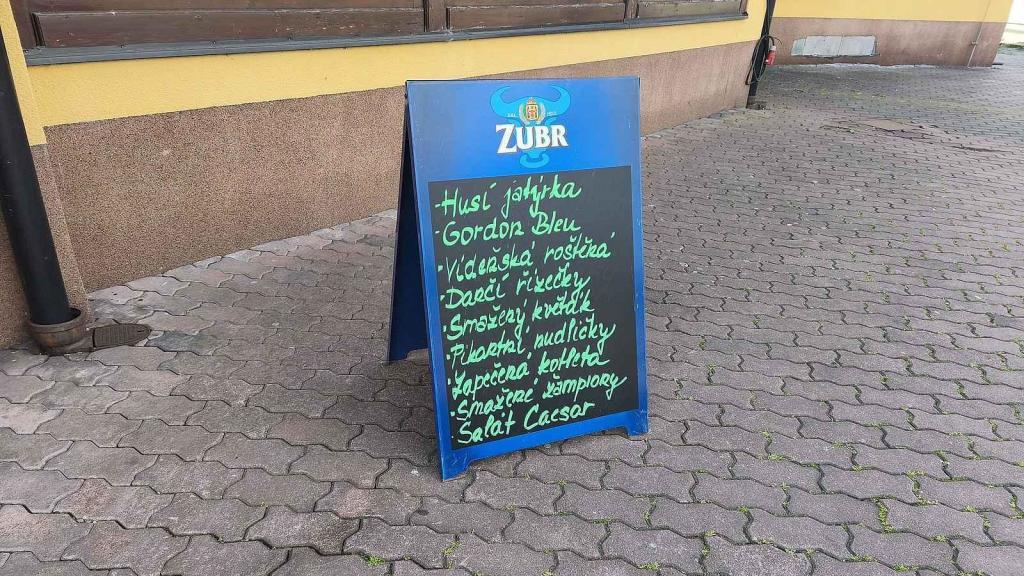 ZUBR
-Husí játýrka
-Gordon Bleu
-Vídeňská roštěná
-Darčí řízečky
-Smažený květák
-Pikantní nudličky
-Zapečená kotleta
-Smažené žampiony
-Salát Caesar